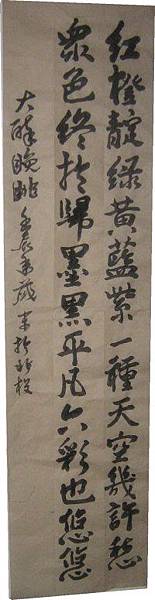 紅橙靛綠黃藍紫一種天空幾許愁
眾色終於歸墨黑平凡六彩也悠悠
大醉晚眺 歲末於